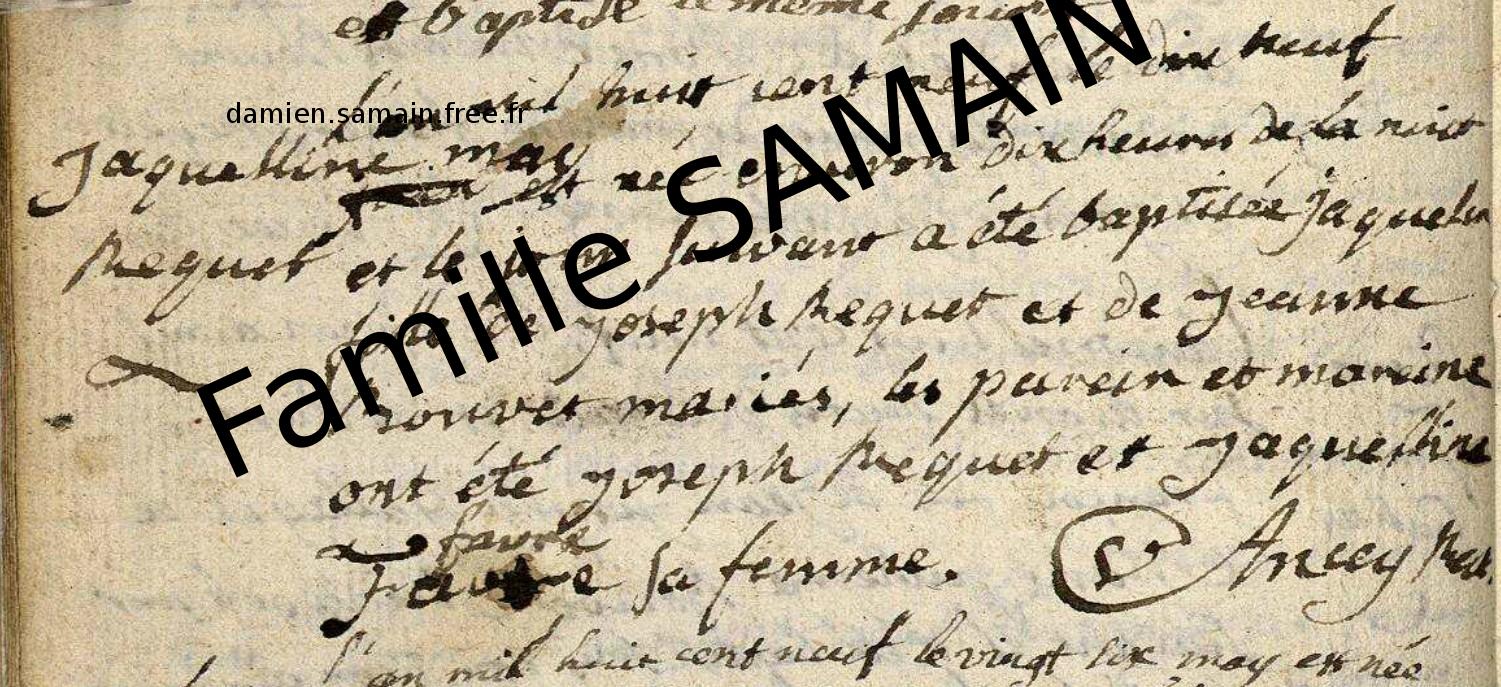 et baptisé le même jour
l'an mil huit cent neuf le dix neuf
damien.samain.free.fr
Jaquelline may
est née environ dix heures de la nuit
Requet et le jour suivant a été baptisée Jaquelin
fille de Joseph Requet et de Jeanne
Famille SAMAIN
Brouvet mariés, les parein et mareine
ont été Joseph Requet et Jaquelline
favre
favre sa femme. Ancey
l'an mil huit cent neuf le vingt six may est née